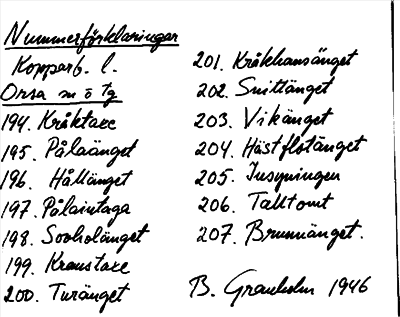 Nummerförklaringar
Kopparb. l.
Orsa sn ö tg
194. Kråktaxe
195. Pålaänget
196. Hållänget
197. Pålaintaga
198. Sooholänget
199. Kranstaxe
200. Turänget
201. Kråkhansänget
202. Snittänget
203. Vikänget
204. Hästflotänget
205. Insyningen
206. Talltomt
207. Brunnänget.
B. Granholm 1946